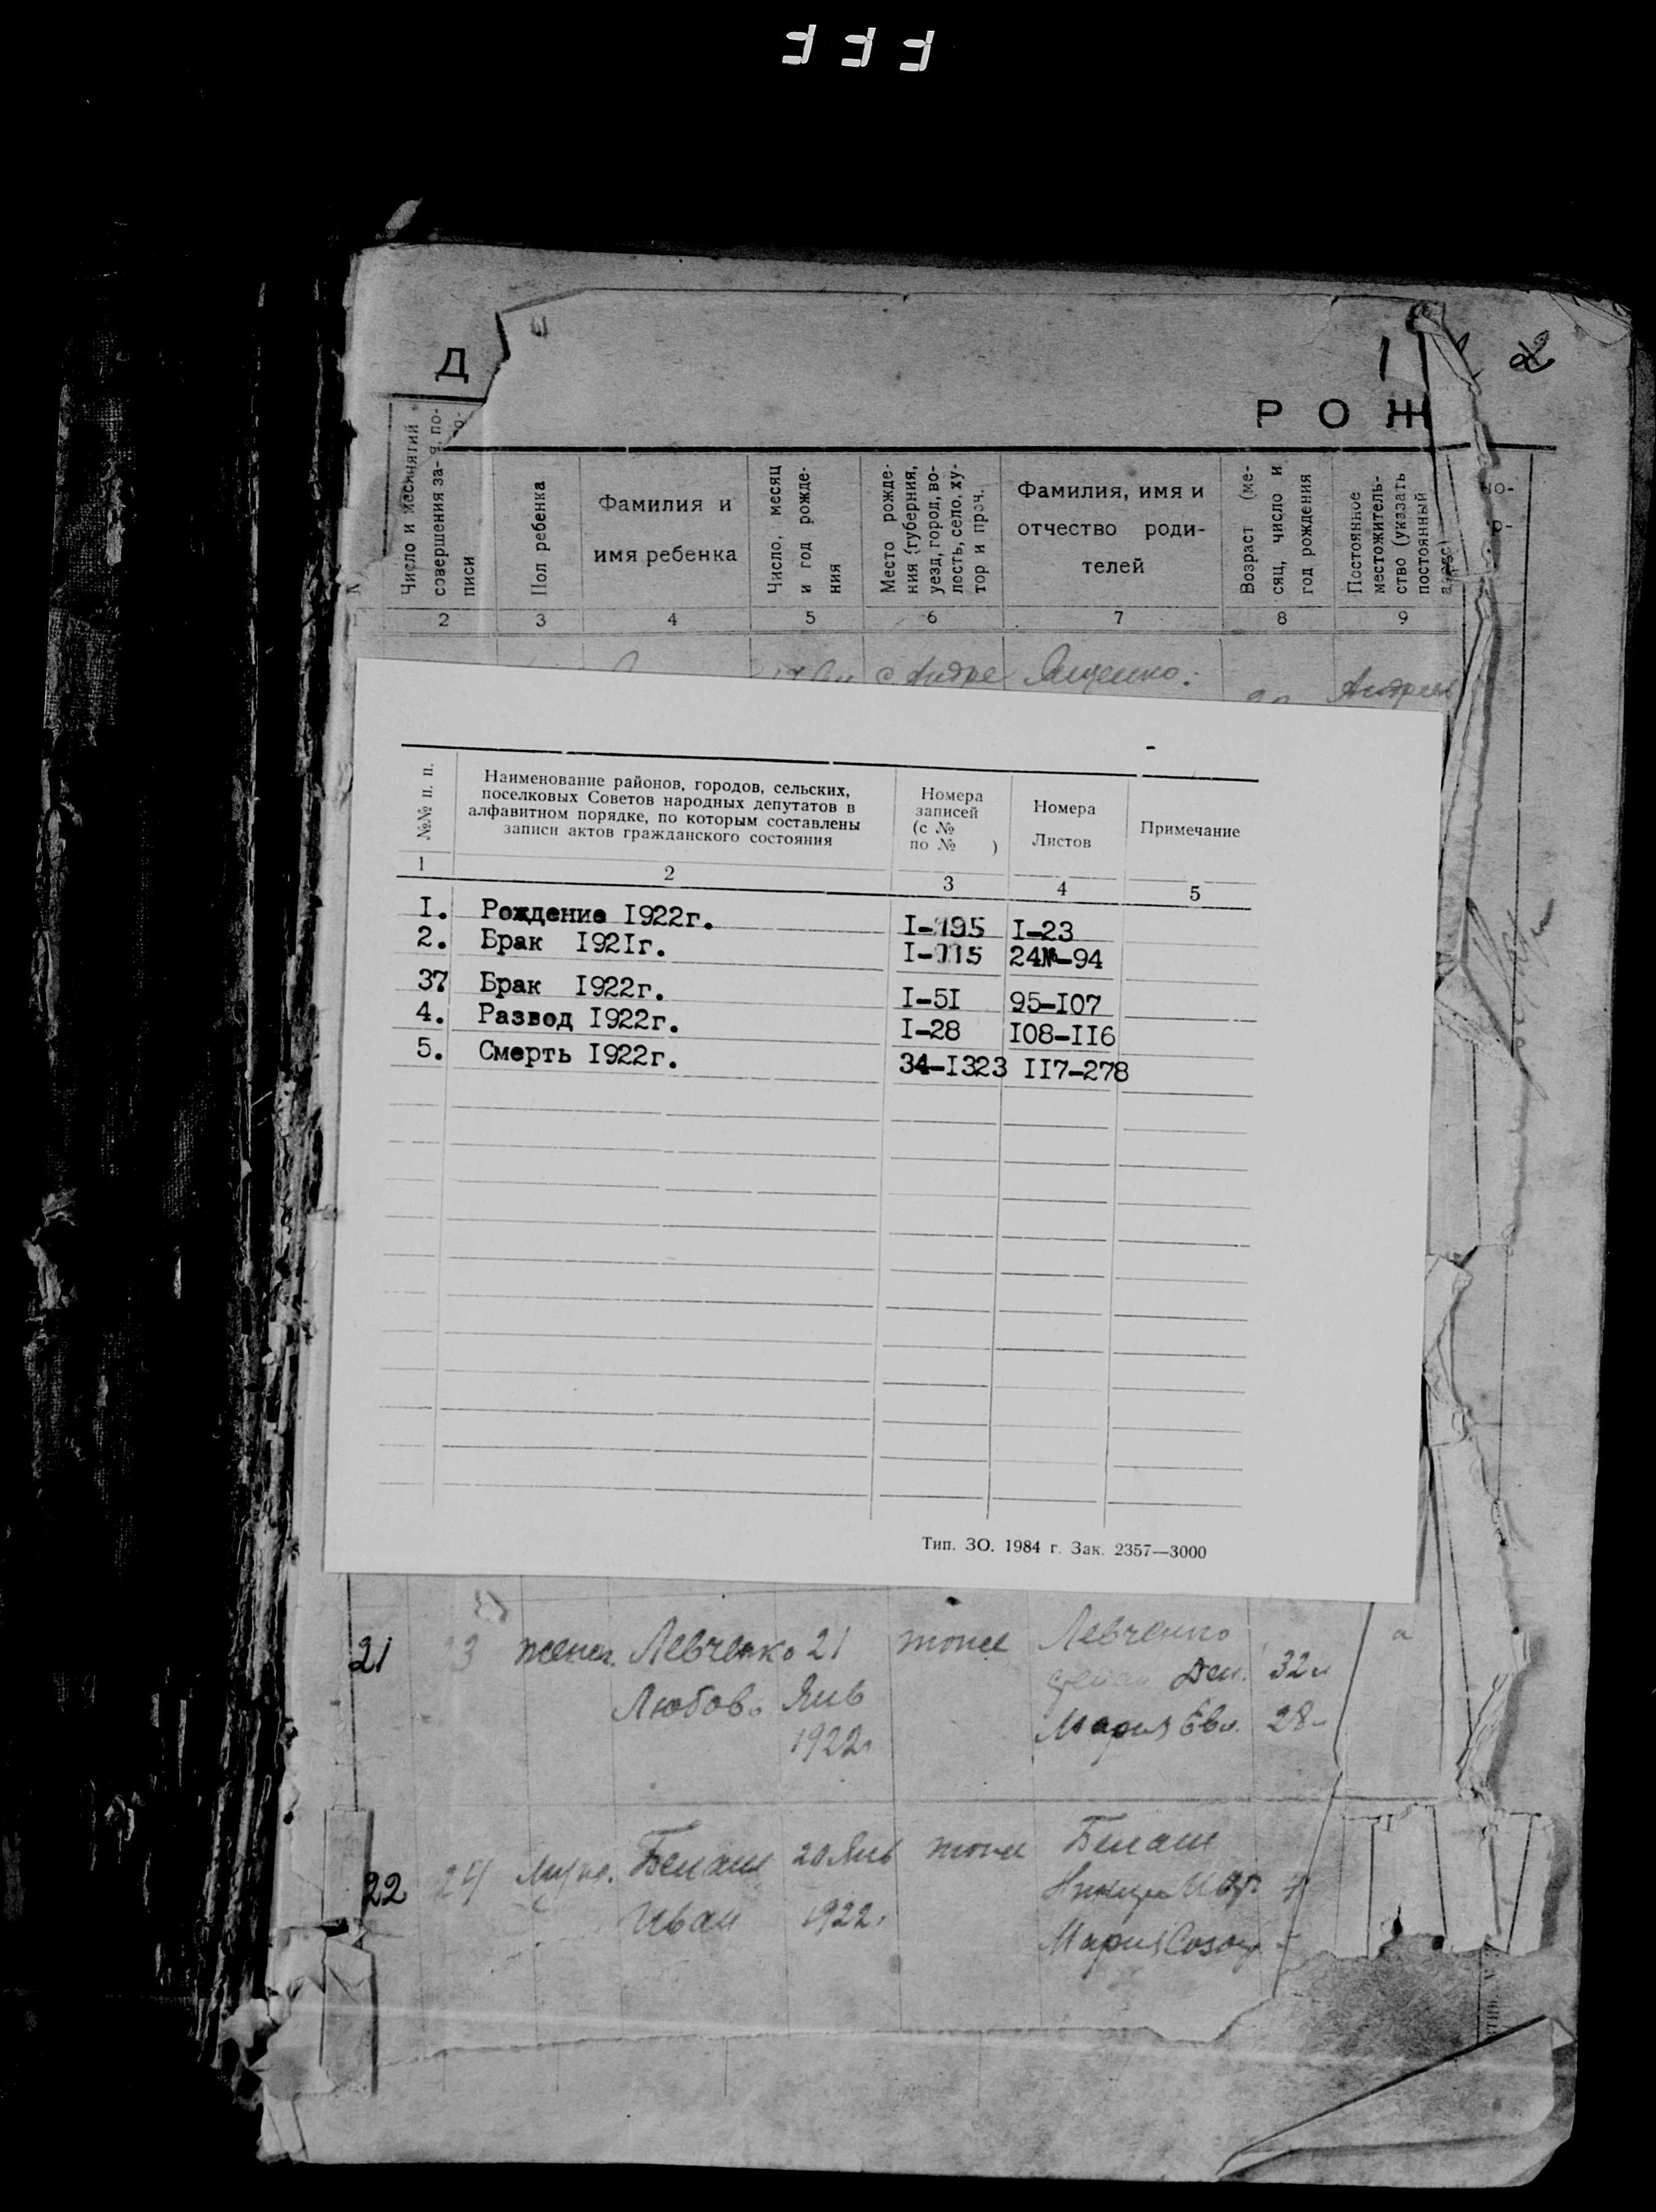 Д
2
Р О Ж
Число и месяц
совершения за-
писи
Пол ребенка
Фамилия и
имя ребенка
Число, месяц
и год рожде-
ния
Место рожде-
ния (губерния,
уезд, город, во-
лость, село, ху-
тор и проч.
Фамилия, имя и
отчество роди-
телей
Возраст (ме-
сяц, число и
год рождения
Постоянное
местожитель-
ство (указать
постоянный
адрес)
2 3 4 5 6 7 8 9
с Андре Ященко: Андрея
№№ п. п.
Наименование районов, городов, сельских,
поселковых Советов народных депутатов в
алфавитном порядке, по которым составлены
записи актов гражданского состояния
Номера
записей
(с №
по № )
Номера
Листов
Примечание
1 2 3 4 5
I. Рождение I922г. I-195 I-23
2. Брак I92Iг. I-115 24-94
37 Брак I922г. I-5I 95-I07
4. Развод I922г. I-28 I08-II6
5. Смерть I922г. 34-I323 II7-278
Тип. ЗО. 1984 г. Зак. 2357—3000
21 23 женск. Левченко 21 тоже Левченко
Дем. 32
Любовь Янв
Мария Евд. 28
1922г
22 24 Муж. Белаш 20 Янв тоже Белаш
Иван 1922г
Мария